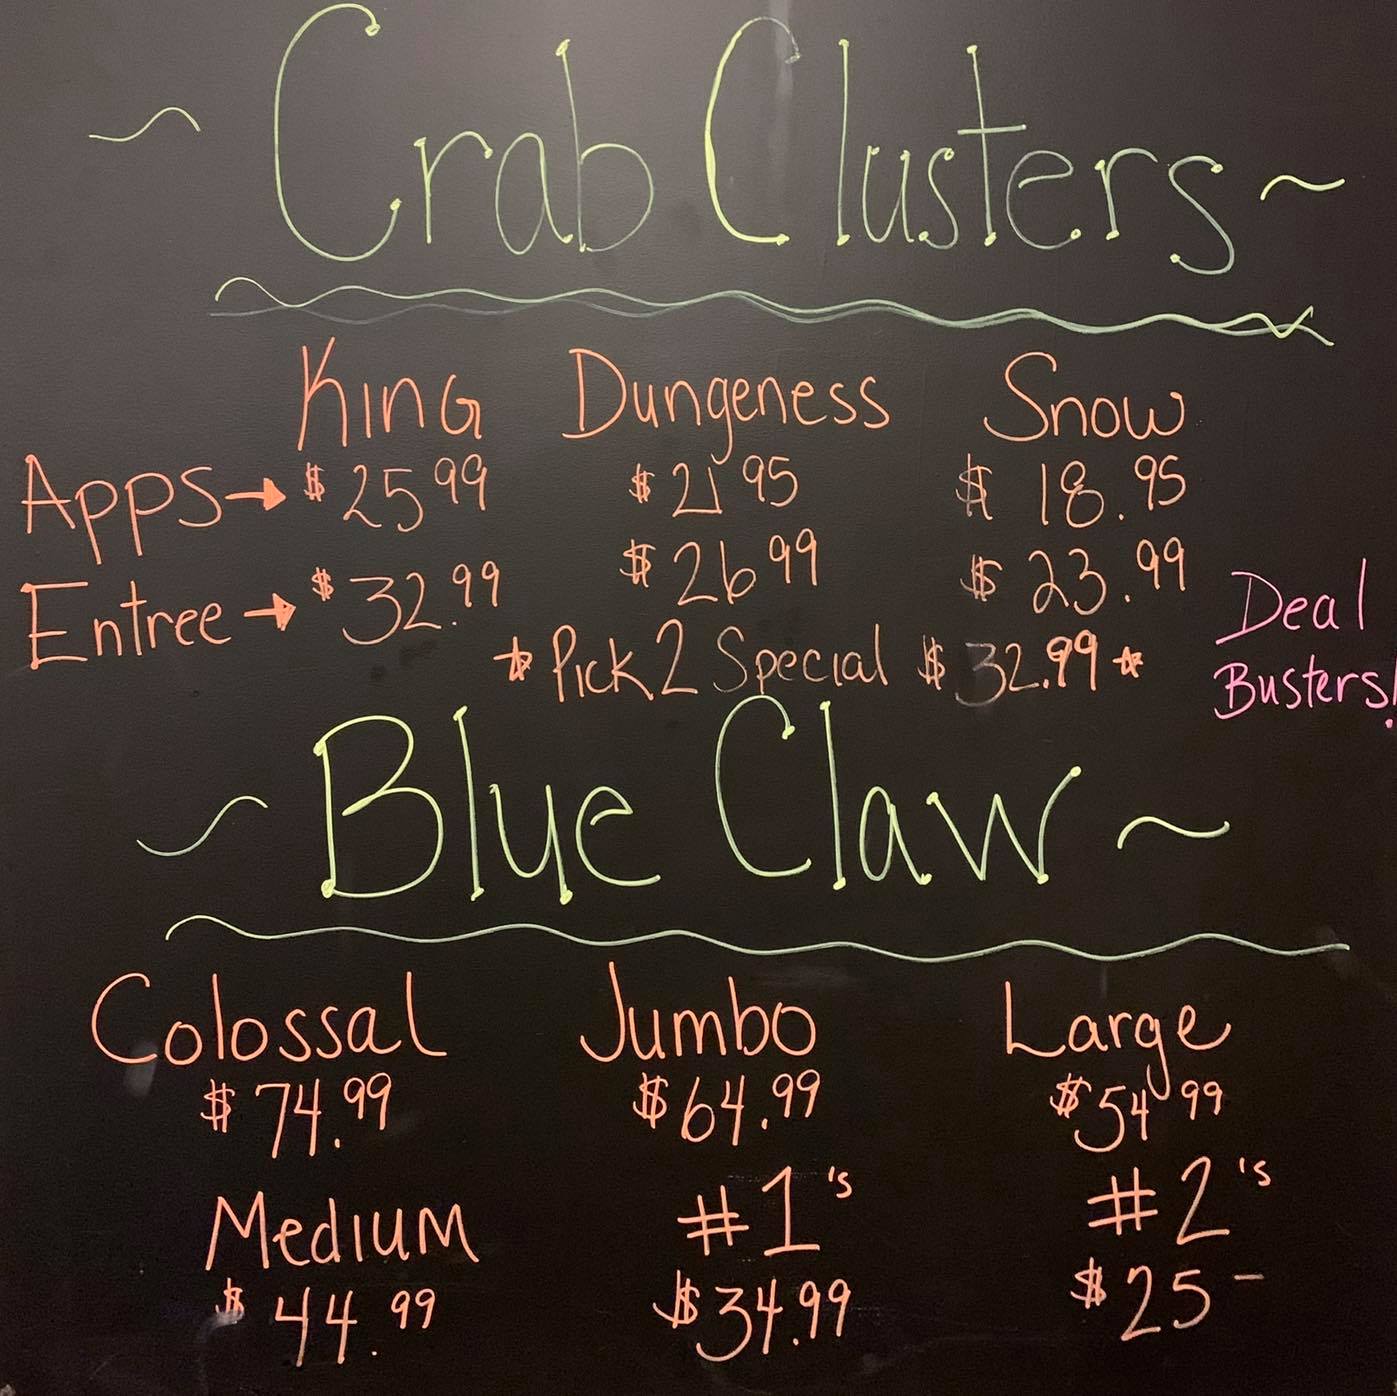 ~ Crab Clusters ~
King Dungeness Snow
Apps → $25.99 $21.95 $18.95
Entree → $32.99 $26.99 $23.99
Deal
* Pick 2 Special $32.99 *
Busters!
~ Blue Claw ~
Colossal Jumbo Large
$74.99 $64.99 $54.99
Medium #1's #2's
$44.99 $34.99 $25-